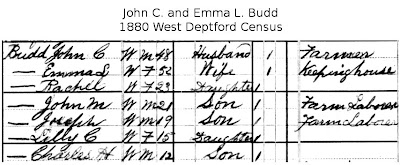 John C. and Emma L. Budd
1880 West Deptford Census
Budd John C W M 48 Husband 1 Farmer
— Emma L W F 52 Wife 1 Keeping house
— Rachel W F 23 Daughter 1
— John M W M 21 Son 1 Farm Laborer
— Joseph W M 19 Son 1 Farm Laborer
— Lilly C W F 15 Daughter 1
— Charles H W M 12 Son 1